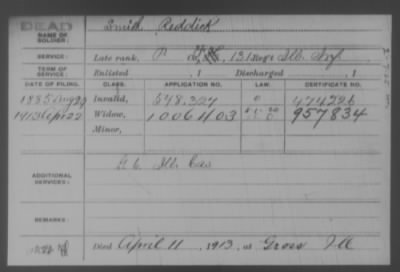 DEAD
NAME OF SOLDIER:
Smith, Reddick
SERVICE:
Late rank, P Co. H, 131 Reg't Ill. Inf.
TERM OF SERVICE:
Enlisted , 1 Discharged , 1
DATE OF FILING. CLASS. APPLICATION NO. LAW. CERTIFICATE NO.
1885 Aug Invalid, 548,327 474226
1913 Apr 22 Widow, 1006403 957834
Minor,
ADDITIONAL SERVICES:
Ill. Cav
REMARKS:
Died April 11, 1913, at Gross Ill